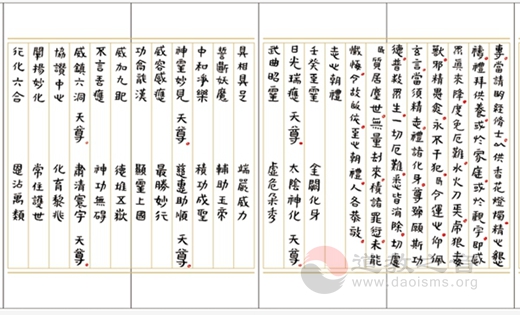 專當請明經修士以供香花燈燭精心懇
禱禮拜供養或於家庭或於觀宇即感
眾真來降度免厄難水火刀兵虎狼毒
獸邪精畏愈永不干犯臣今運心仰佩
玄言當須精志禮諸化身尊號願斯功
德普救眾生一切厄難悉皆消除切慮
臣質居塵世無量劫來積諸罪愆未能
懺悔今故皈依至心朝禮人各恭敬
志心朝禮
壬癸至靈 金闕化身
日光瑞應 天尊 太陰神化 天尊
武曲昭靈 虛危分秀
具相具足 端嚴威力
誓斷妖魔 輔助玉帝
中和淨樂 積功成聖
神靈妙見 天尊 慈惠助順 天尊
威容感應 最勝妙行
功侖龍漢 顯靈上國
威加九地 德堆五嶽
不言善應 神功無碍
威鎮六洞 天尊 肅清寰宇 天尊
協讚中心 化育黎兆
闡揚妙化 常住護世
行化六合 恩沾萬類
道教之音
www.daoisms.org